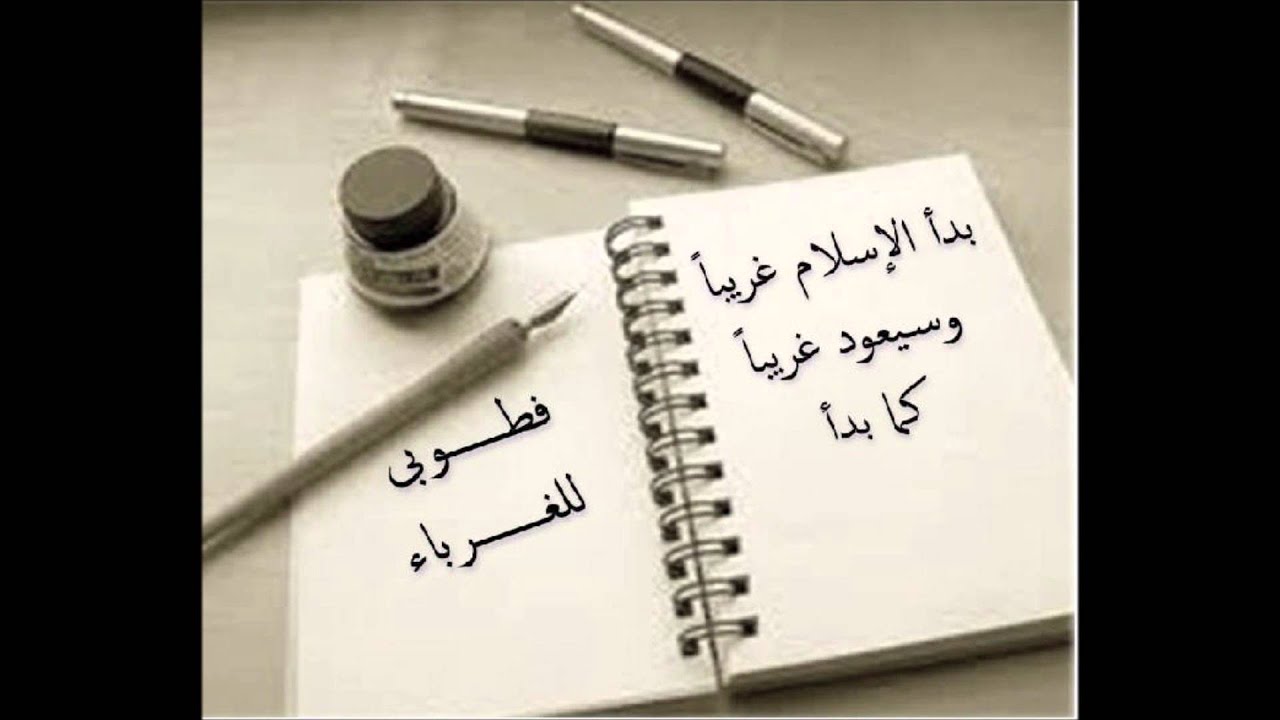 بدأ الإسلام غريباً
وسيعود غريباً
كما بدأ
فطـــوبى
للغـــرباء